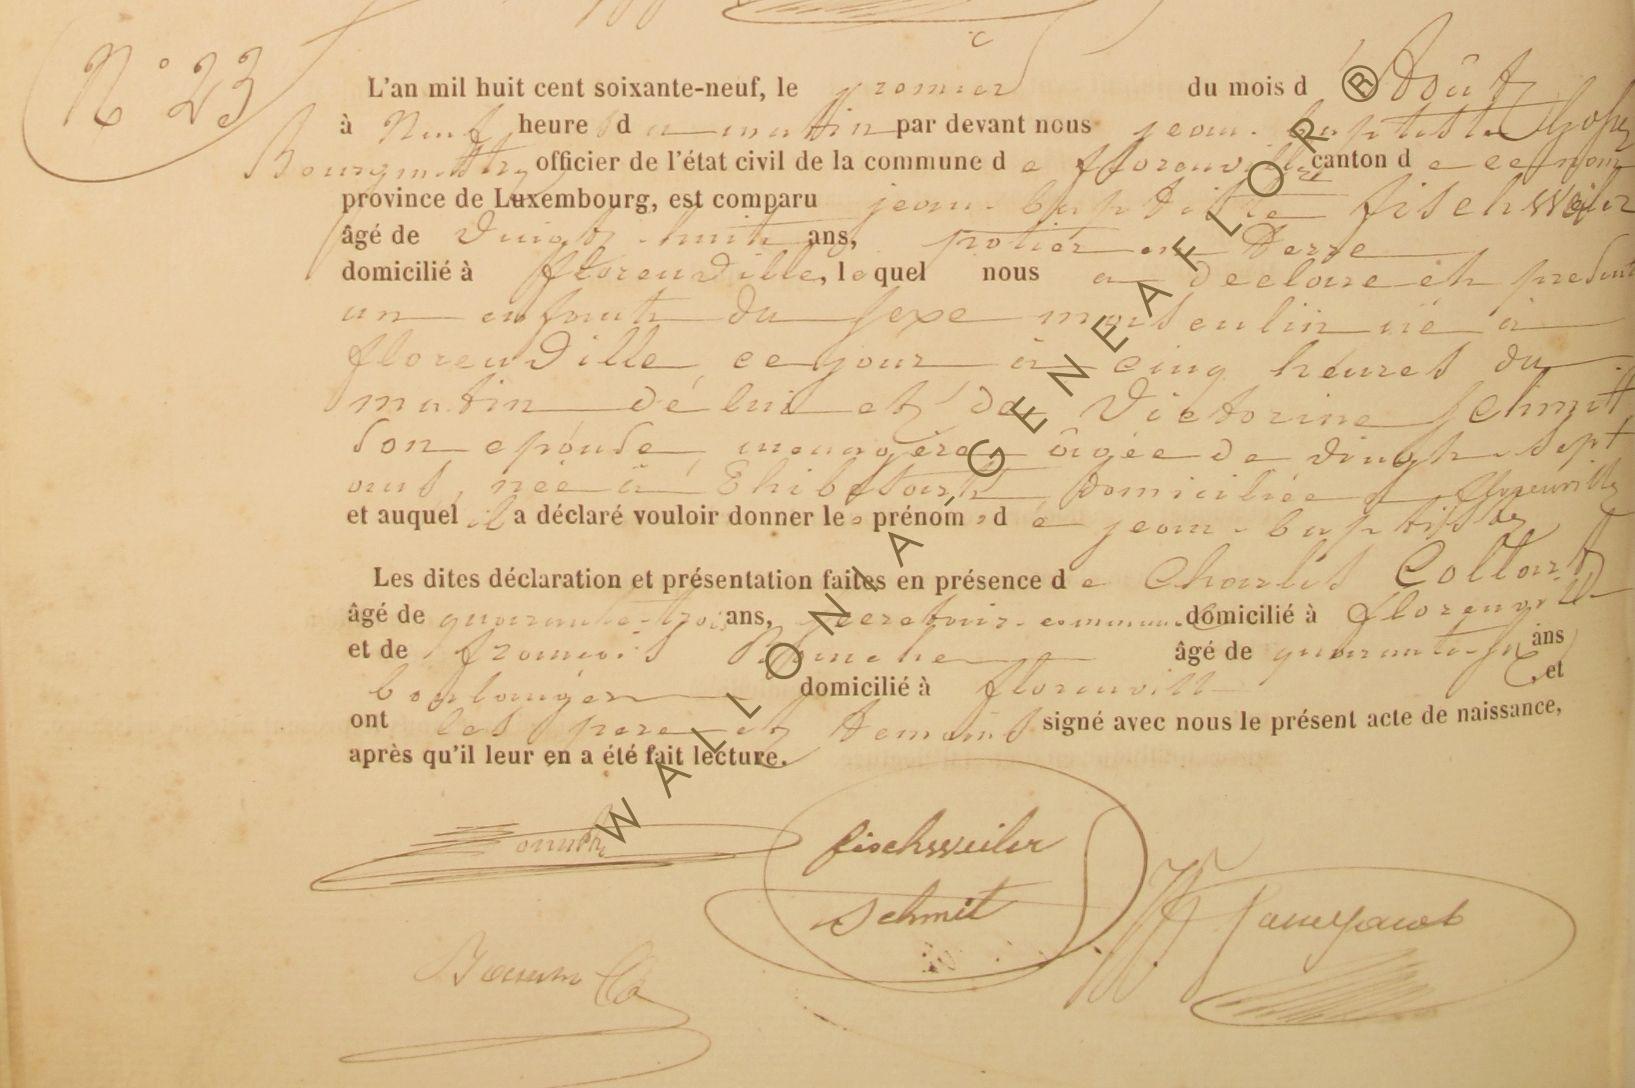 N° 23
L'an mil huit cent soixante-neuf, le premier du mois d'Août
à Neuf heure du matin par devant nous jean-baptiste
Bourgmestre officier de l'état civil de la commune de fflorenville canton de ce nom
province de Luxembourg, est comparu jean-baptiste fischweiler
âgé de vingt huit ans, potier en terre
domicilié à fflorenville, lequel nous a declaré et présenté
un enfant du sexe masculin né à
florenville, ce jour à cinq heures du
matin de lui et de Victorine schmitt
son epouse, menagère âgée de vingt-sept
ans, née à domiciliée à florenville
et auquel il a déclaré vouloir donner le prénom de jean-baptiste
Les dites déclaration et présentation faites en présence de Charles Collart
âgé de quarante-trois ans, secretaire communal domicilié à florenville
et de françois âgé de quarante-six ans
boulanger domicilié à florenville et
ont les père et temoins signé avec nous le présent acte de naissance,
après qu'il leur en a été fait lecture.
fischweiler
schmit
WALLONIA, GENEAFLOR®